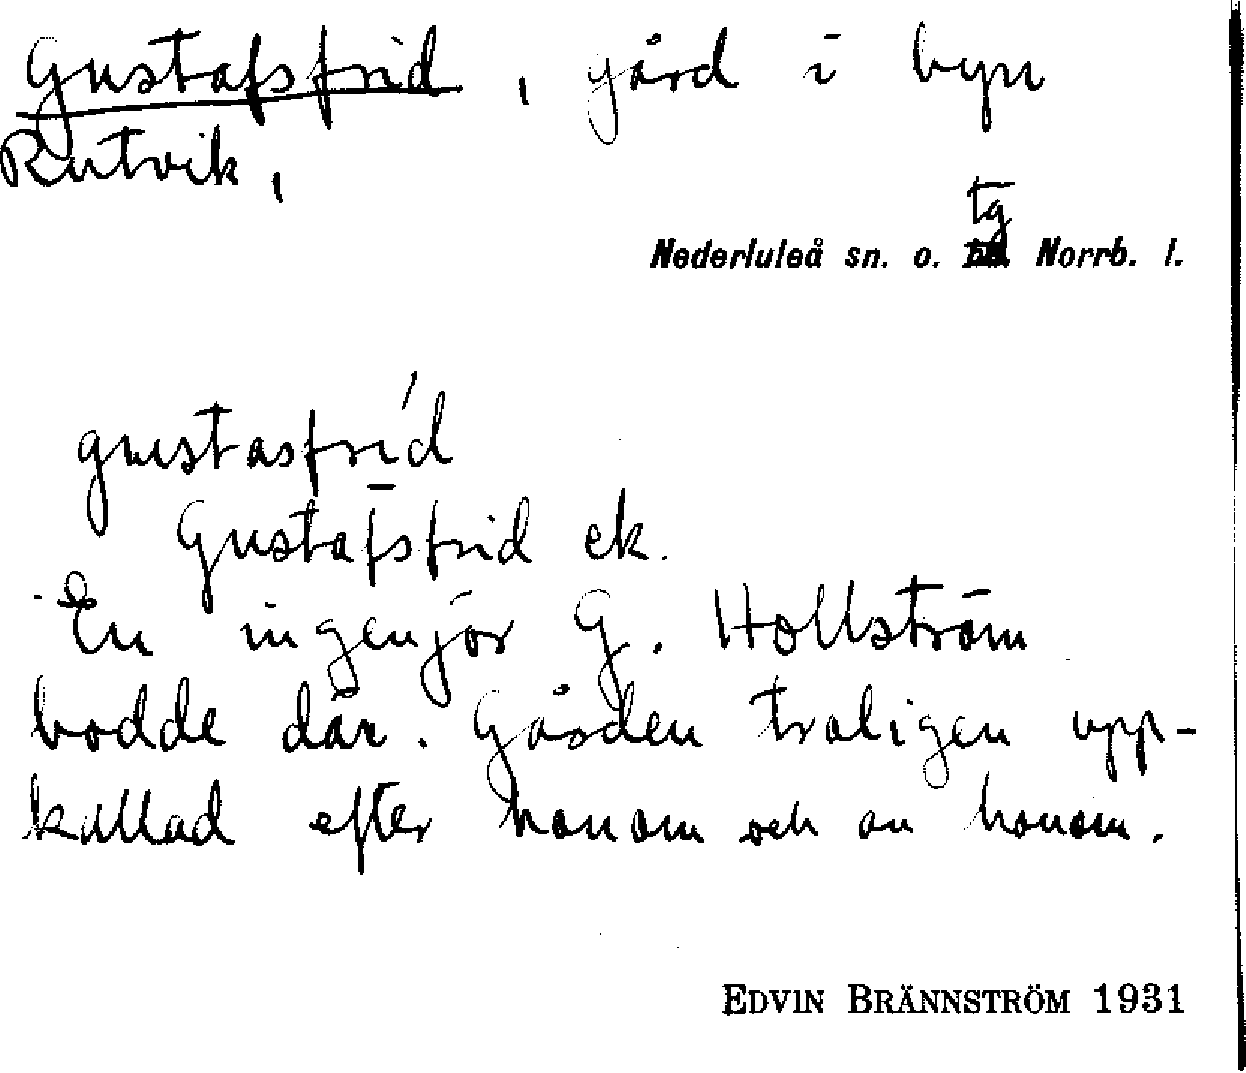 Gustafsfrid, gård i byn
Rutvik,
tg
Nederluleå sn. o. Norrb. l.
gustasfri̱´d
Gustafsfrid ek.
En ingenjör G. Hollström
bodde där. Gården troligen upp-
kallad efter honom och av honom.
EDVIN BRÄNNSTRÖM 1931